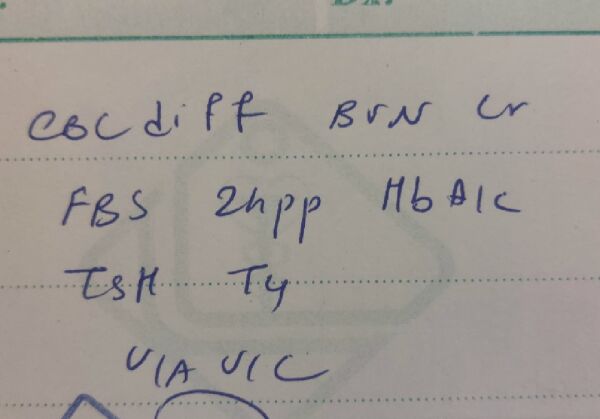 CBC diff BUN Cr
FBS 2hpp HbA1C
TSH T4
U/A U/C